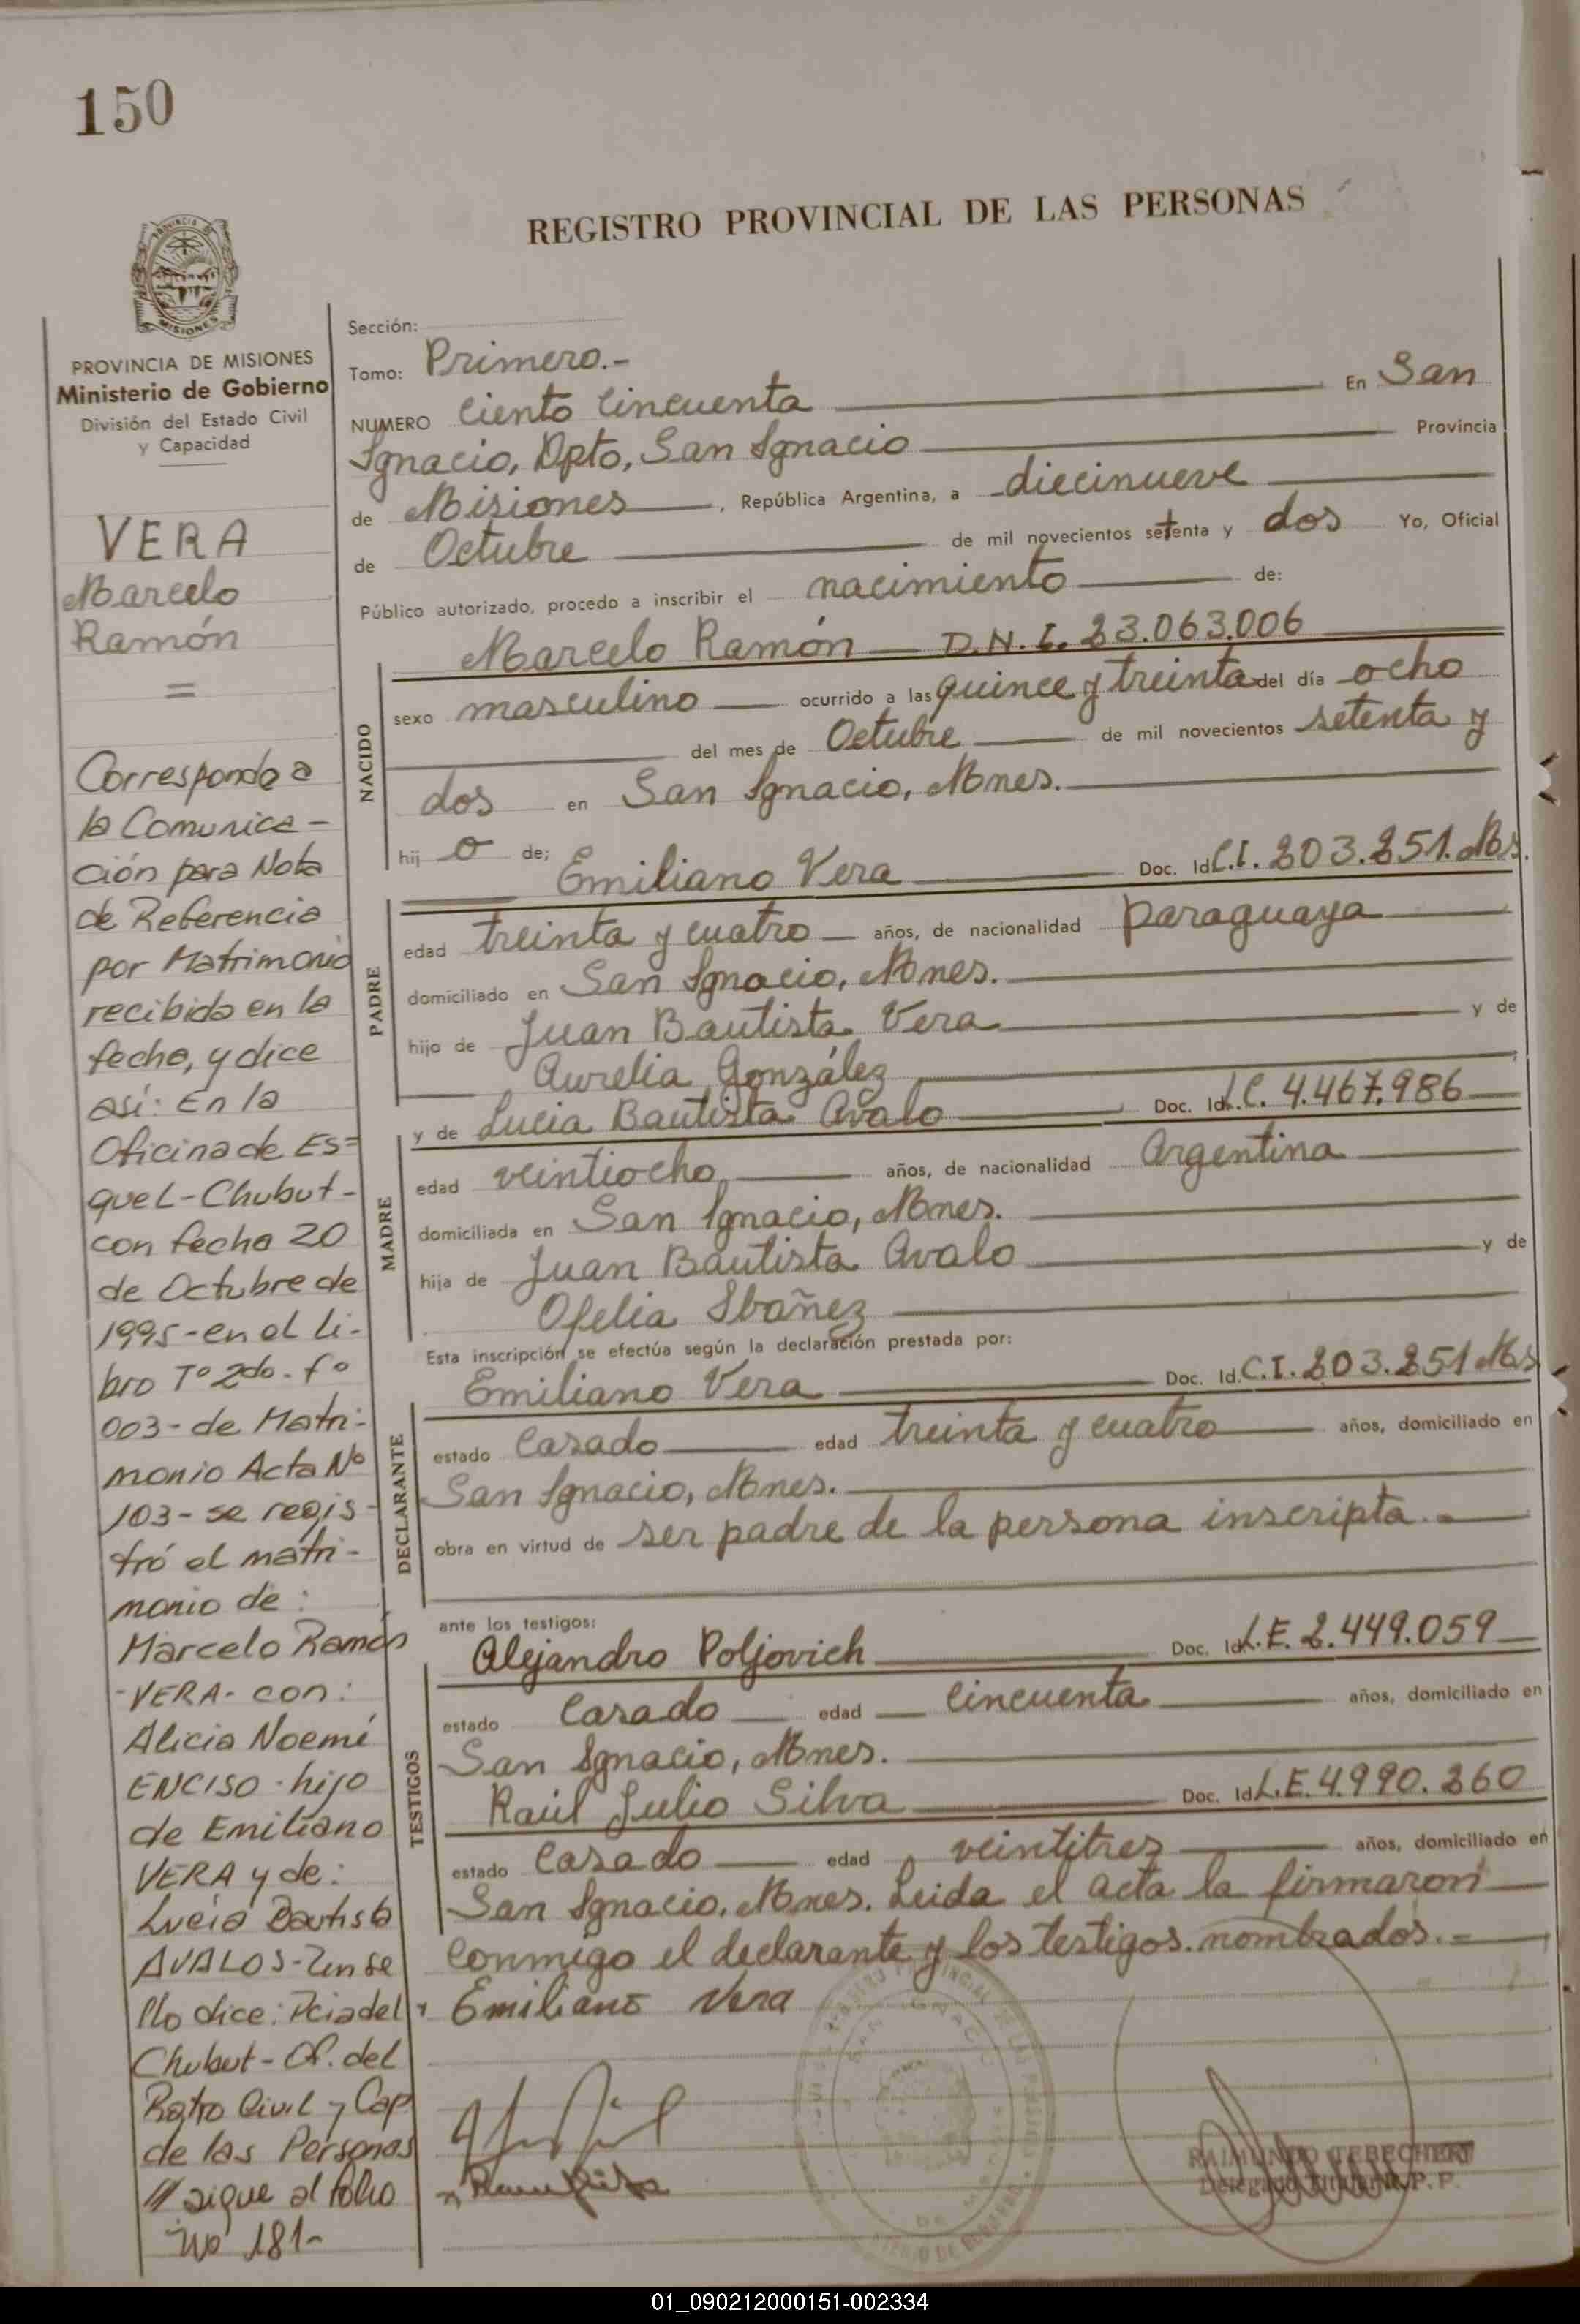 150
REGISTRO PROVINCIAL DE LAS PERSONAS
PROVINCIA
MISIONES
PROVINCIA DE MISIONES
Ministerio de Gobierno
División del Estado Civil
y Capacidad
VERA
Marcelo
Ramón
=
Corresponde a
la Comunica-
ción para Nota
de Referencia
por Matrimonio
recibida en la
fecha, y dice
así: En la
Oficina de Es=
quel-Chubut-
con fecha 20
de Octubre de
1995-en el li-
bro Tº 2do. fº
003-de Matri-
monio Acta Nº
103-se regis-
tró el matri-
monio de:
Marcelo Ramón
-VERA- con:
Alicia Noemí
ENCISO-hijo
de Emiliano
VERA y de:
Lucía Bautista
AVALOS-Un se
llo dice: Pcia del
Chubut-Of. del
Rgtro Civil y Cap
de las Personas
// sigue al folio
Nº 181-
Sección:
Tomo: Primero.-
NUMERO Ciento Cincuenta En San
Ignacio, Dpto, San Ignacio Provincia
de Misiones, República Argentina, a diecinueve
de Octubre de mil novecientos setenta y dos Yo, Oficial
Público autorizado, procedo a inscribir el nacimiento de:
Marcelo Ramón — D.N.I. 23.063.006
NACIDO
sexo masculino ocurrido a las quince y treinta del día ocho
del mes de Octubre de mil novecientos setenta y
dos en San Ignacio, Mnes.
hij o de; Emiliano Vera Doc. Id. C.I. 203.251. Ms.
PADRE
edad treinta y cuatro años, de nacionalidad paraguaya
domiciliado en San Ignacio, Mnes.
hijo de Juan Bautista Vera y de
Aurelia González
y de Lucia Bautista Avalo Doc. Id. L.C. 4.467.986
MADRE
edad veintiocho años, de nacionalidad Argentina
domiciliada en San Ignacio, Mnes.
hija de Juan Bautista Avalo y de
Ofelia Ibañez
Esta inscripción se efectúa según la declaración prestada por:
Emiliano Vera Doc. Id. C.I. 203.251 Ms
DECLARANTE
estado Casado edad treinta y cuatro años, domiciliado en
San Ignacio, Mnes.
obra en virtud de ser padre de la persona inscripta.-
ante los testigos:
Alejandro Poljovich Doc. Id. L.E. 2.449.059
TESTIGOS
estado Casado edad Cincuenta años, domiciliado en
San Ignacio, Mnes.
Raúl Julio Silva Doc. Id. L.E. 4.990.260
estado Casado edad veintitrez años, domiciliado en
San Ignacio, Mnes. Leida el acta la firmaron
conmigo el declarante y los testigos nombrados.=
Emiliano Vera
RAIMUNDO TEBECHERY
Delegado Titular R.P.P.
01_090212000151-002334